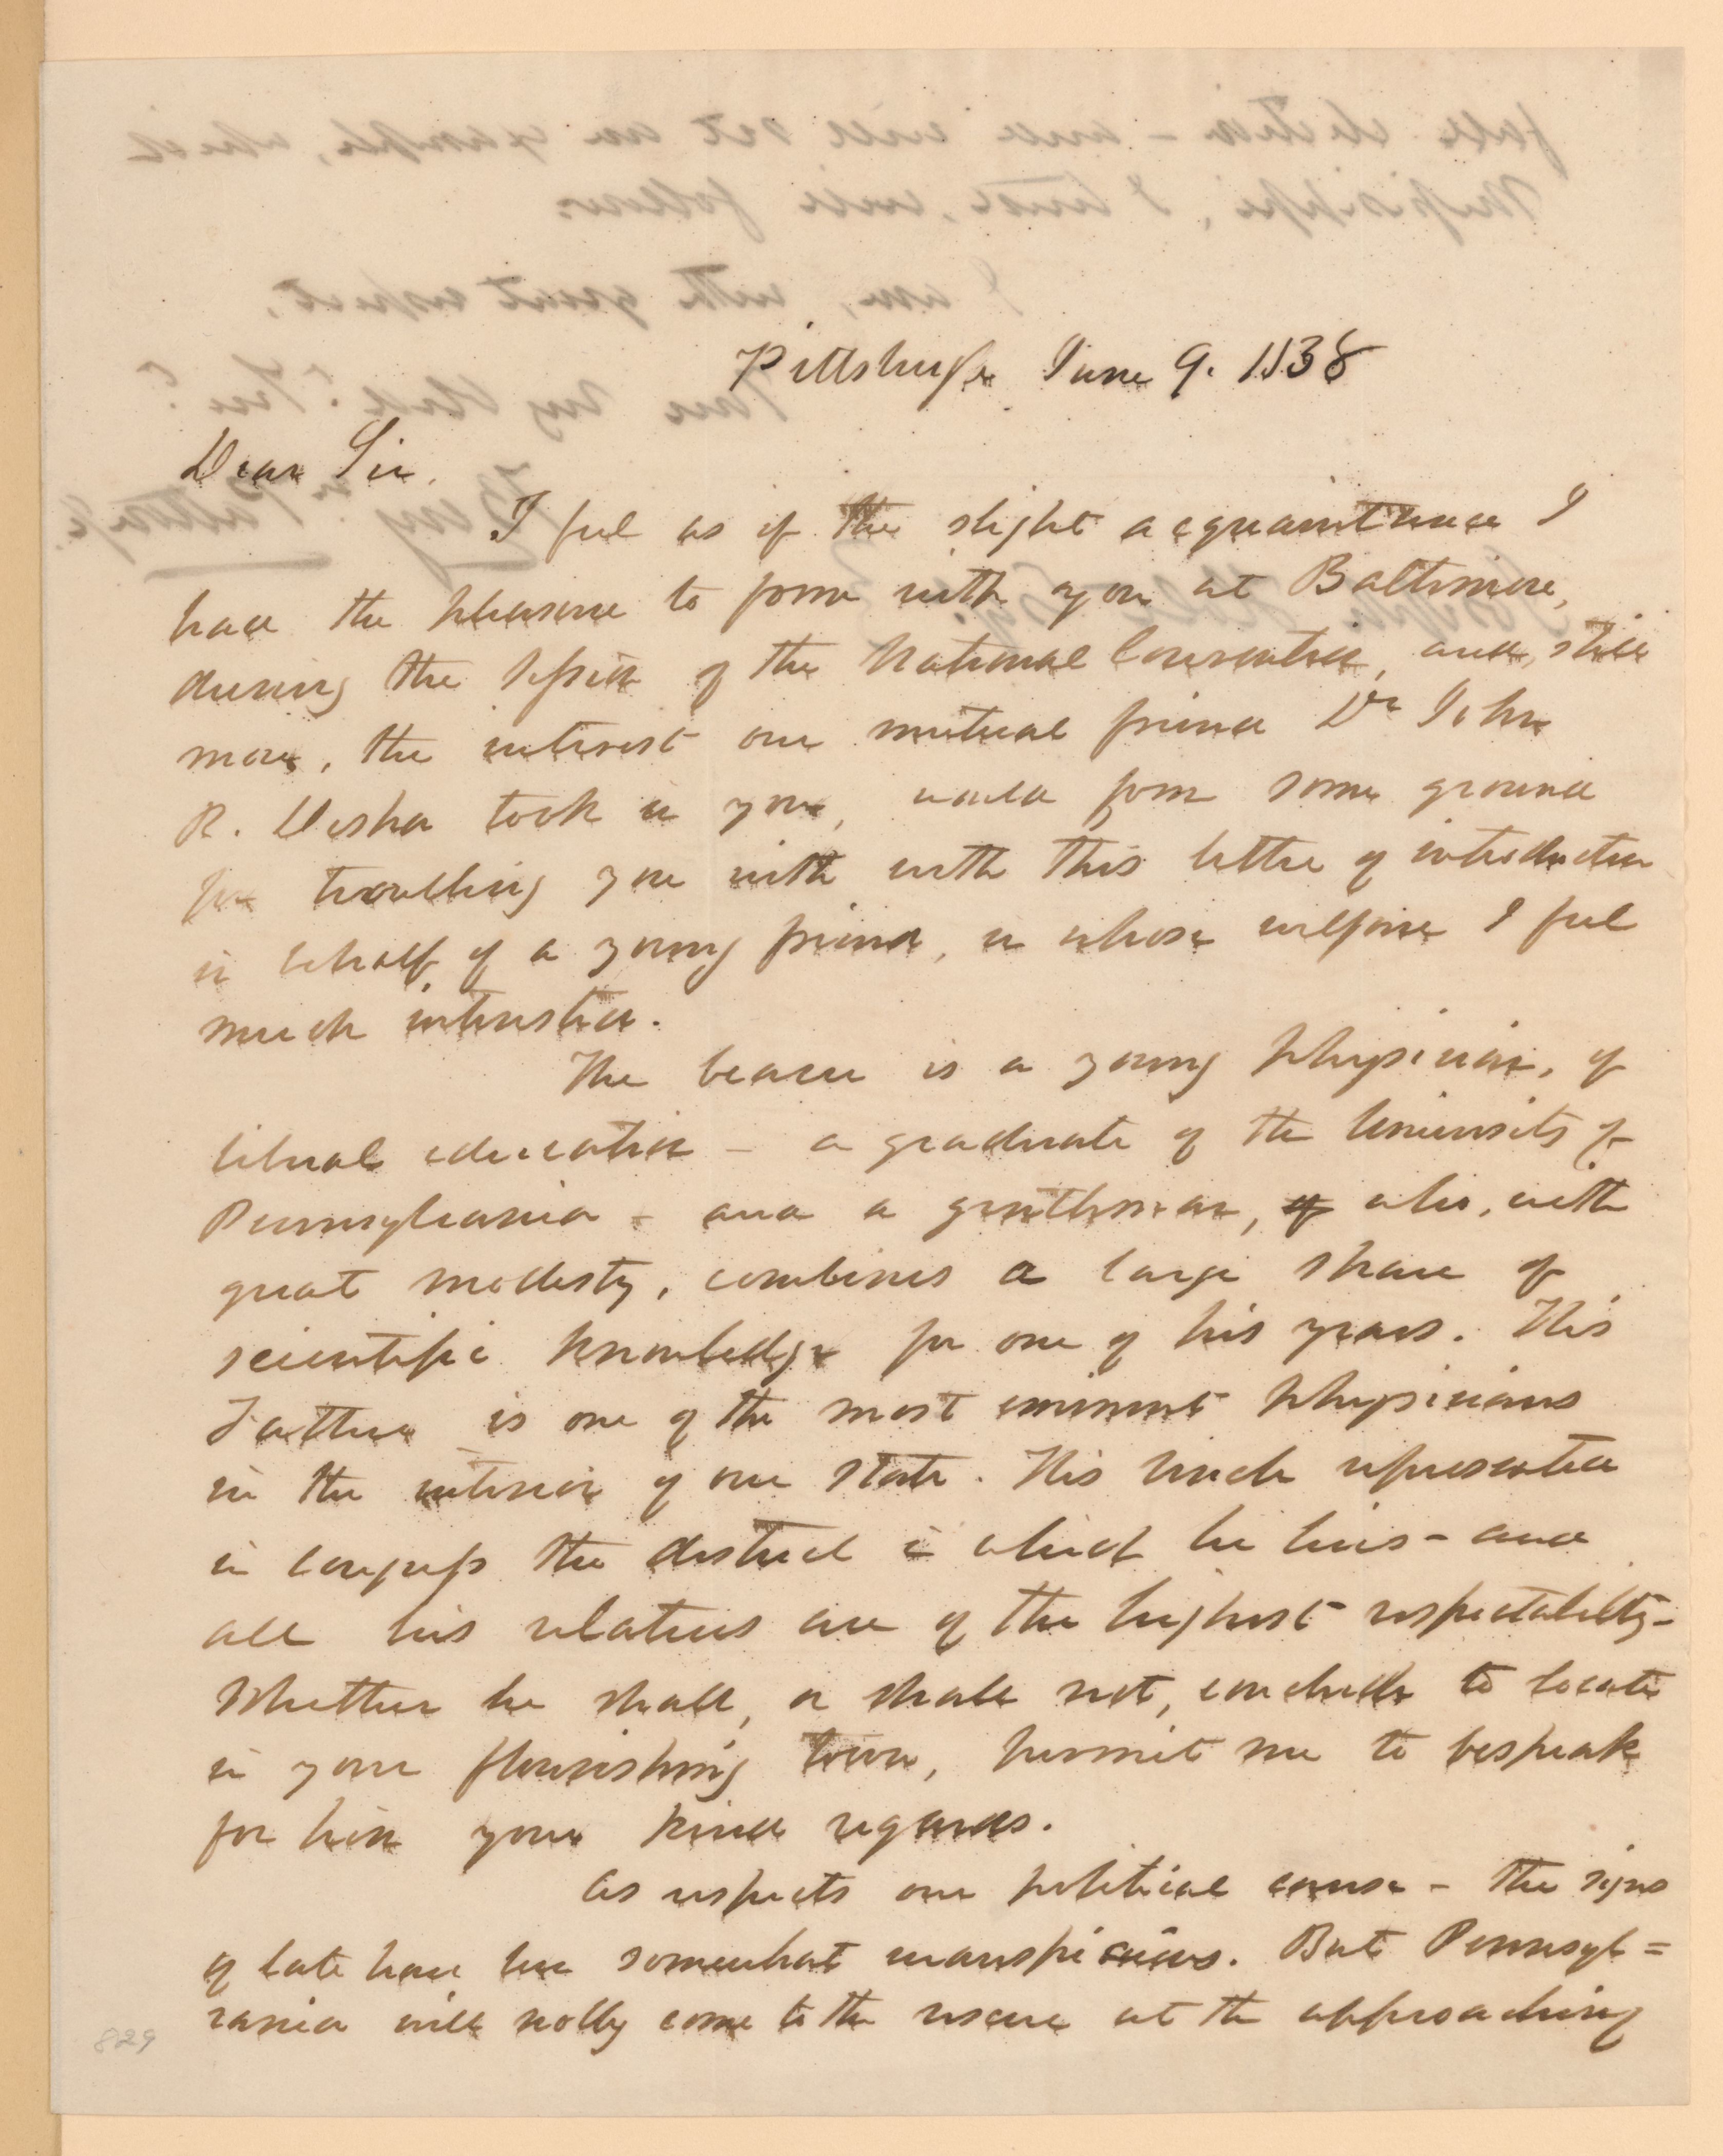 Pittsburgh June 9. 1838
Dear Sir,
I feel as if the slight acquaintance I
had the pleasure to form with you at Baltimore,
during the Session of the National Convention, and, still
more, the interest our mutual friend Dr John
R. Desha took in you, would form some ground
for troubling you with with this letter of introduction
in behalf of a young friend, in whose welfare I feel
much interested.
The bearer is a young Physician, of
liberal education - a graduate of the University of
Pennsylvania - and a gentleman, of who, with
great modesty, combines a large share of
scientific knowledge for one of his years. His
Father is one of the most eminent Physicians
in the interior of our State. His Uncle represented
in Congress the district in which he lives - and
all his relatives are of the highest respectability -
Whether he shall, or shall not, conclude to locate
in your flourishing town, permit me to bespeak
for him your kind regards.
As respects our political cause - the signs
of late have been somewhat inauspicious. But Pennsyl=
vania will nobly come to the rescue at the approaching
829
fall election - and will set an example, which
Missisippi, I trust, will follow.
I am, with great respect,
Benj. Patton Jr.